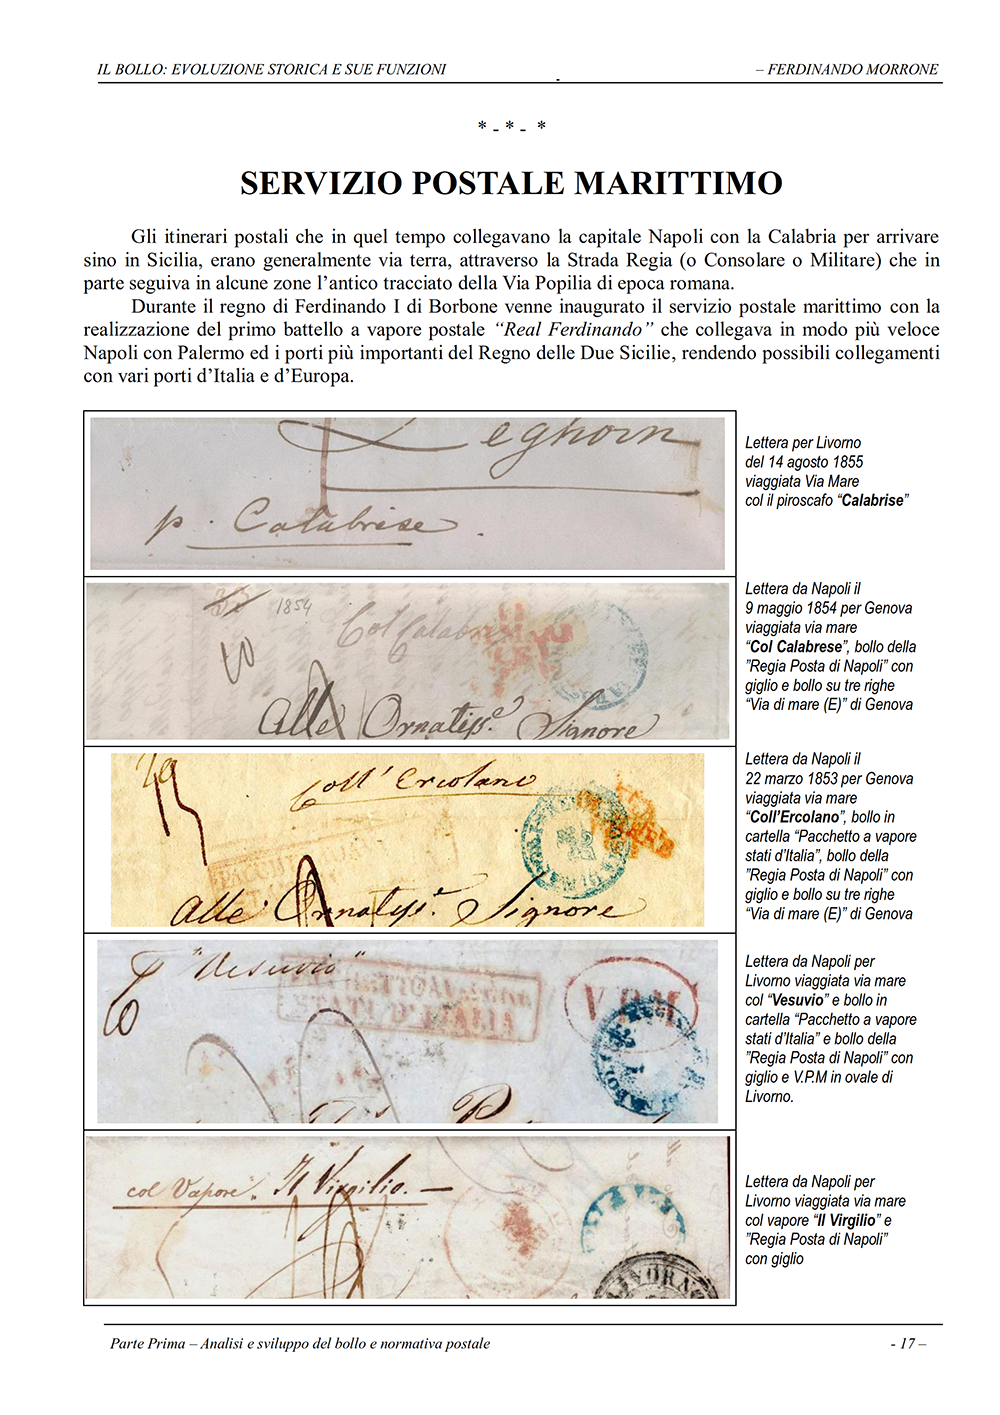 IL BOLLO: EVOLUZIONE STORICA E SUE FUNZIONI – FERDINANDO MORRONE
* - * - *
SERVIZIO POSTALE MARITTIMO
Gli itinerari postali che in quel tempo collegavano la capitale Napoli con la Calabria per arrivare
sino in Sicilia, erano generalmente via terra, attraverso la Strada Regia (o Consolare o Militare) che in
parte seguiva in alcune zone l’antico tracciato della Via Popilia di epoca romana.
Durante il regno di Ferdinando I di Borbone venne inaugurato il servizio postale marittimo con la
realizzazione del primo battello a vapore postale “Real Ferdinando” che collegava in modo più veloce
Napoli con Palermo ed i porti più importanti del Regno delle Due Sicilie, rendendo possibili collegamenti
con vari porti d’Italia e d’Europa.
Leghorn
p. Calabrise
Lettera per Livorno
del 14 agosto 1855
viaggiata Via Mare
col il piroscafo “Calabrise”
1854
Col Calabrese
Alle Ornatiss.e Signore
Lettera da Napoli il
9 maggio 1854 per Genova
viaggiata via mare
“Col Calabrese”, bollo della
”Regia Posta di Napoli” con
giglio e bollo su tre righe
“Via di mare (E)” di Genova
Coll' Ercolano
Alle Ornatiss.e Signore
Lettera da Napoli il
22 marzo 1853 per Genova
viaggiata via mare
“Coll’Ercolano”, bollo in
cartella “Pacchetto a vapore
stati d’Italia”, bollo della
”Regia Posta di Napoli” con
giglio e bollo su tre righe
“Via di mare (E)” di Genova
"Vesuvio"
STATI D'ITALIA
V.P.M
Lettera da Napoli per
Livorno viaggiata via mare
col “Vesuvio” e bollo in
cartella “Pacchetto a vapore
stati d’Italia” e bollo della
”Regia Posta di Napoli” con
giglio e V.P.M in ovale di
Livorno.
col Vapore Il Virgilio.
Lettera da Napoli per
Livorno viaggiata via mare
col vapore “Il Virgilio” e
”Regia Posta di Napoli”
con giglio
Parte Prima – Analisi e sviluppo del bollo e normativa postale - 17 –